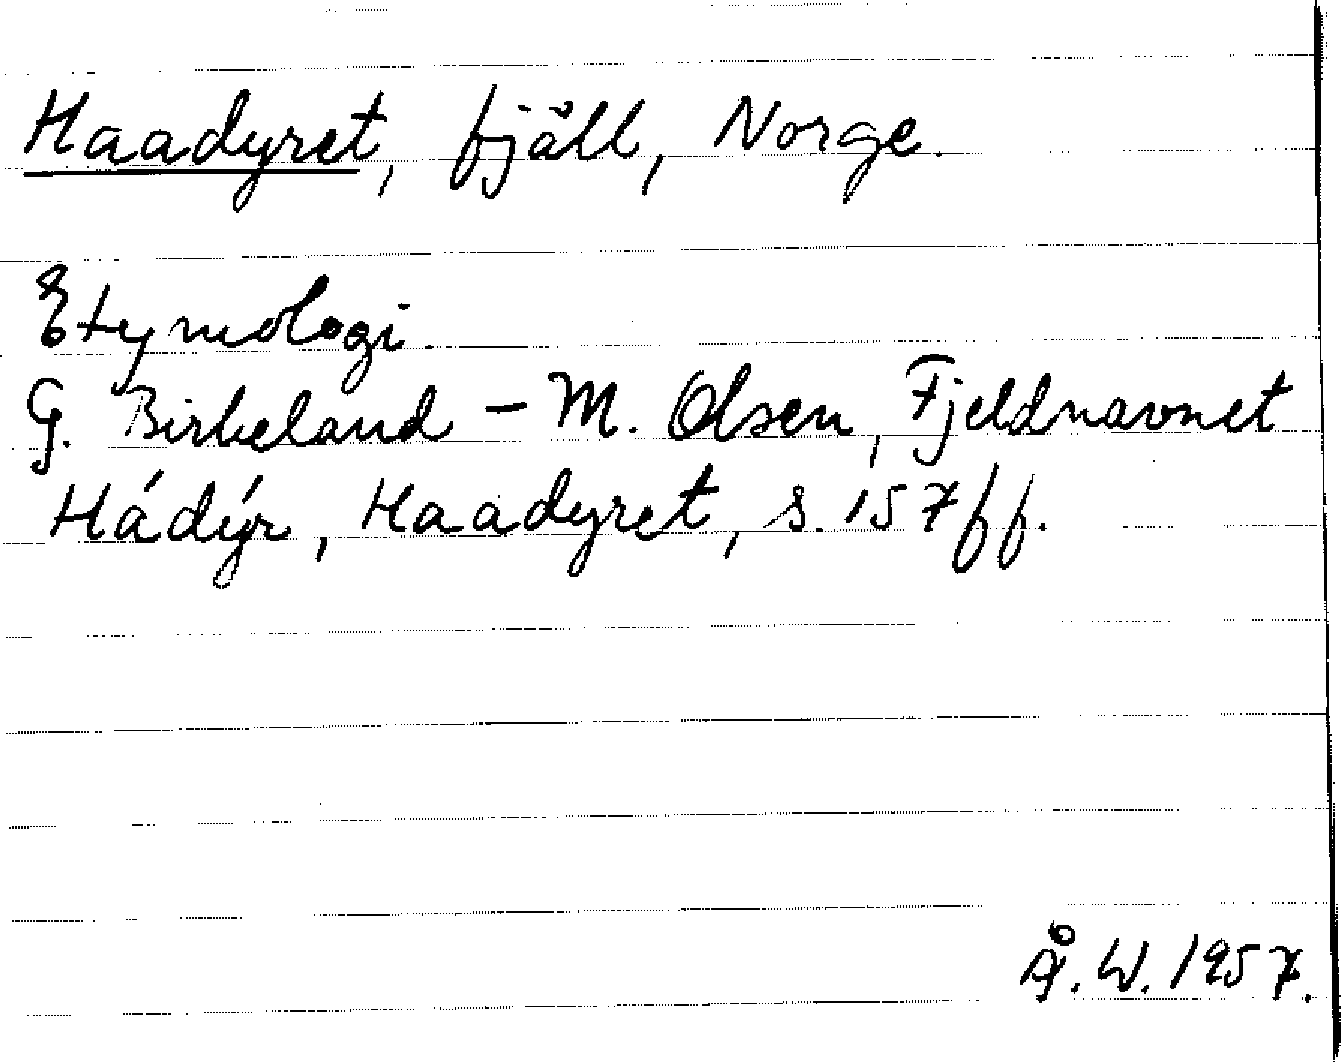 Haadyret, fjäll, Norge.
Etymologi.
G. Birkeland – M. Olsen, Fjeldnavnet
Hádýr, Haadyret, s. 157 ff.
Å. W. 1957.